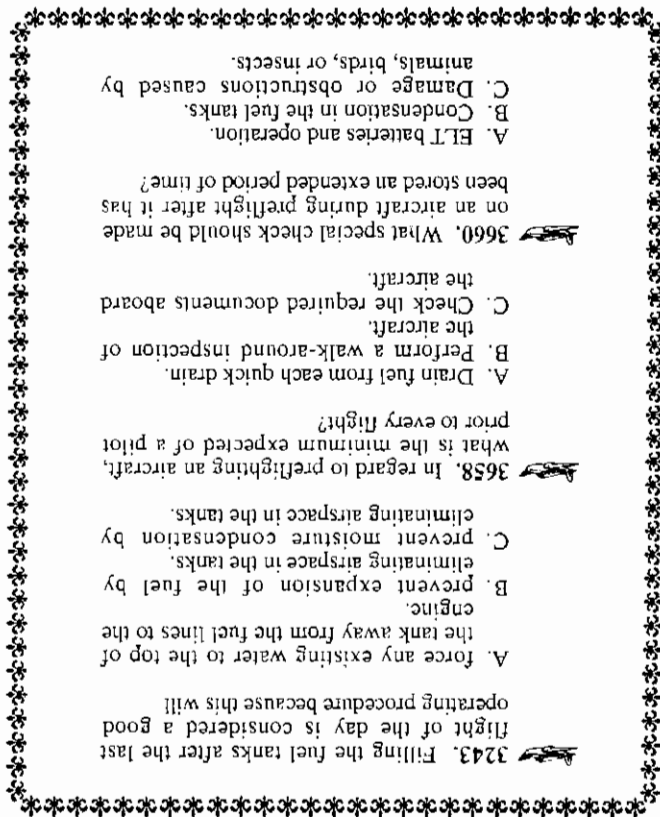 3243. Filling the fuel tanks after the last
flight of the day is considered a good
operating procedure because this will
A. force any existing water to the top of
the tank away from the fuel lines to the
engine.
B. prevent expansion of the fuel by
eliminating airspace in the tanks.
C. prevent moisture condensation by
eliminating airspace in the tanks.
3658. In regard to preflighting an aircraft,
what is the minimum expected of a pilot
prior to every flight?
A. Drain fuel from each quick drain.
B. Perform a walk-around inspection of
the aircraft.
C. Check the required documents aboard
the aircraft.
3660. What special check should be made
on an aircraft during preflight after it has
been stored an extended period of time?
A. ELT batteries and operation.
B. Condensation in the fuel tanks.
C. Damage or obstructions caused by
animals, birds, or insects.